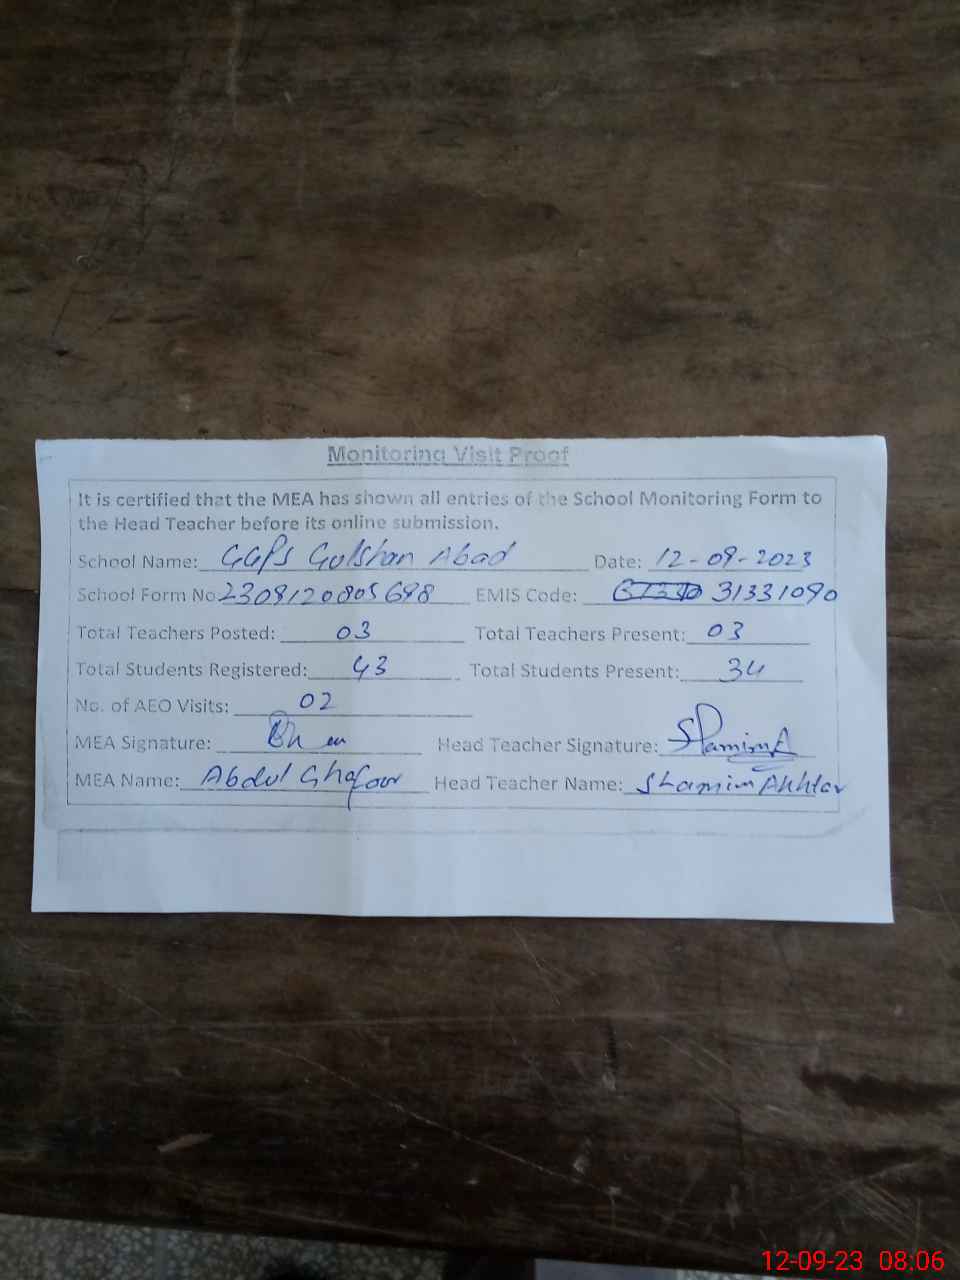 Monitoring Visit Proof
It is certified that the MEA has shown all entries of the School Monitoring Form to
the Head Teacher before its online submission.
School Name: GGPS Gulshan Abad Date: 12-09-2023
School Form No 2309120805698 EMIS Code: 31331090
Total Teachers Posted: 03 Total Teachers Present: 03
Total Students Registered: 43 Total Students Present: 34
No. of AEO Visits: 02
MEA Signature: Head Teacher Signature:
MEA Name: Abdul Ghafoor Head Teacher Name: Shamim Akhtar
12-09-23 08:06